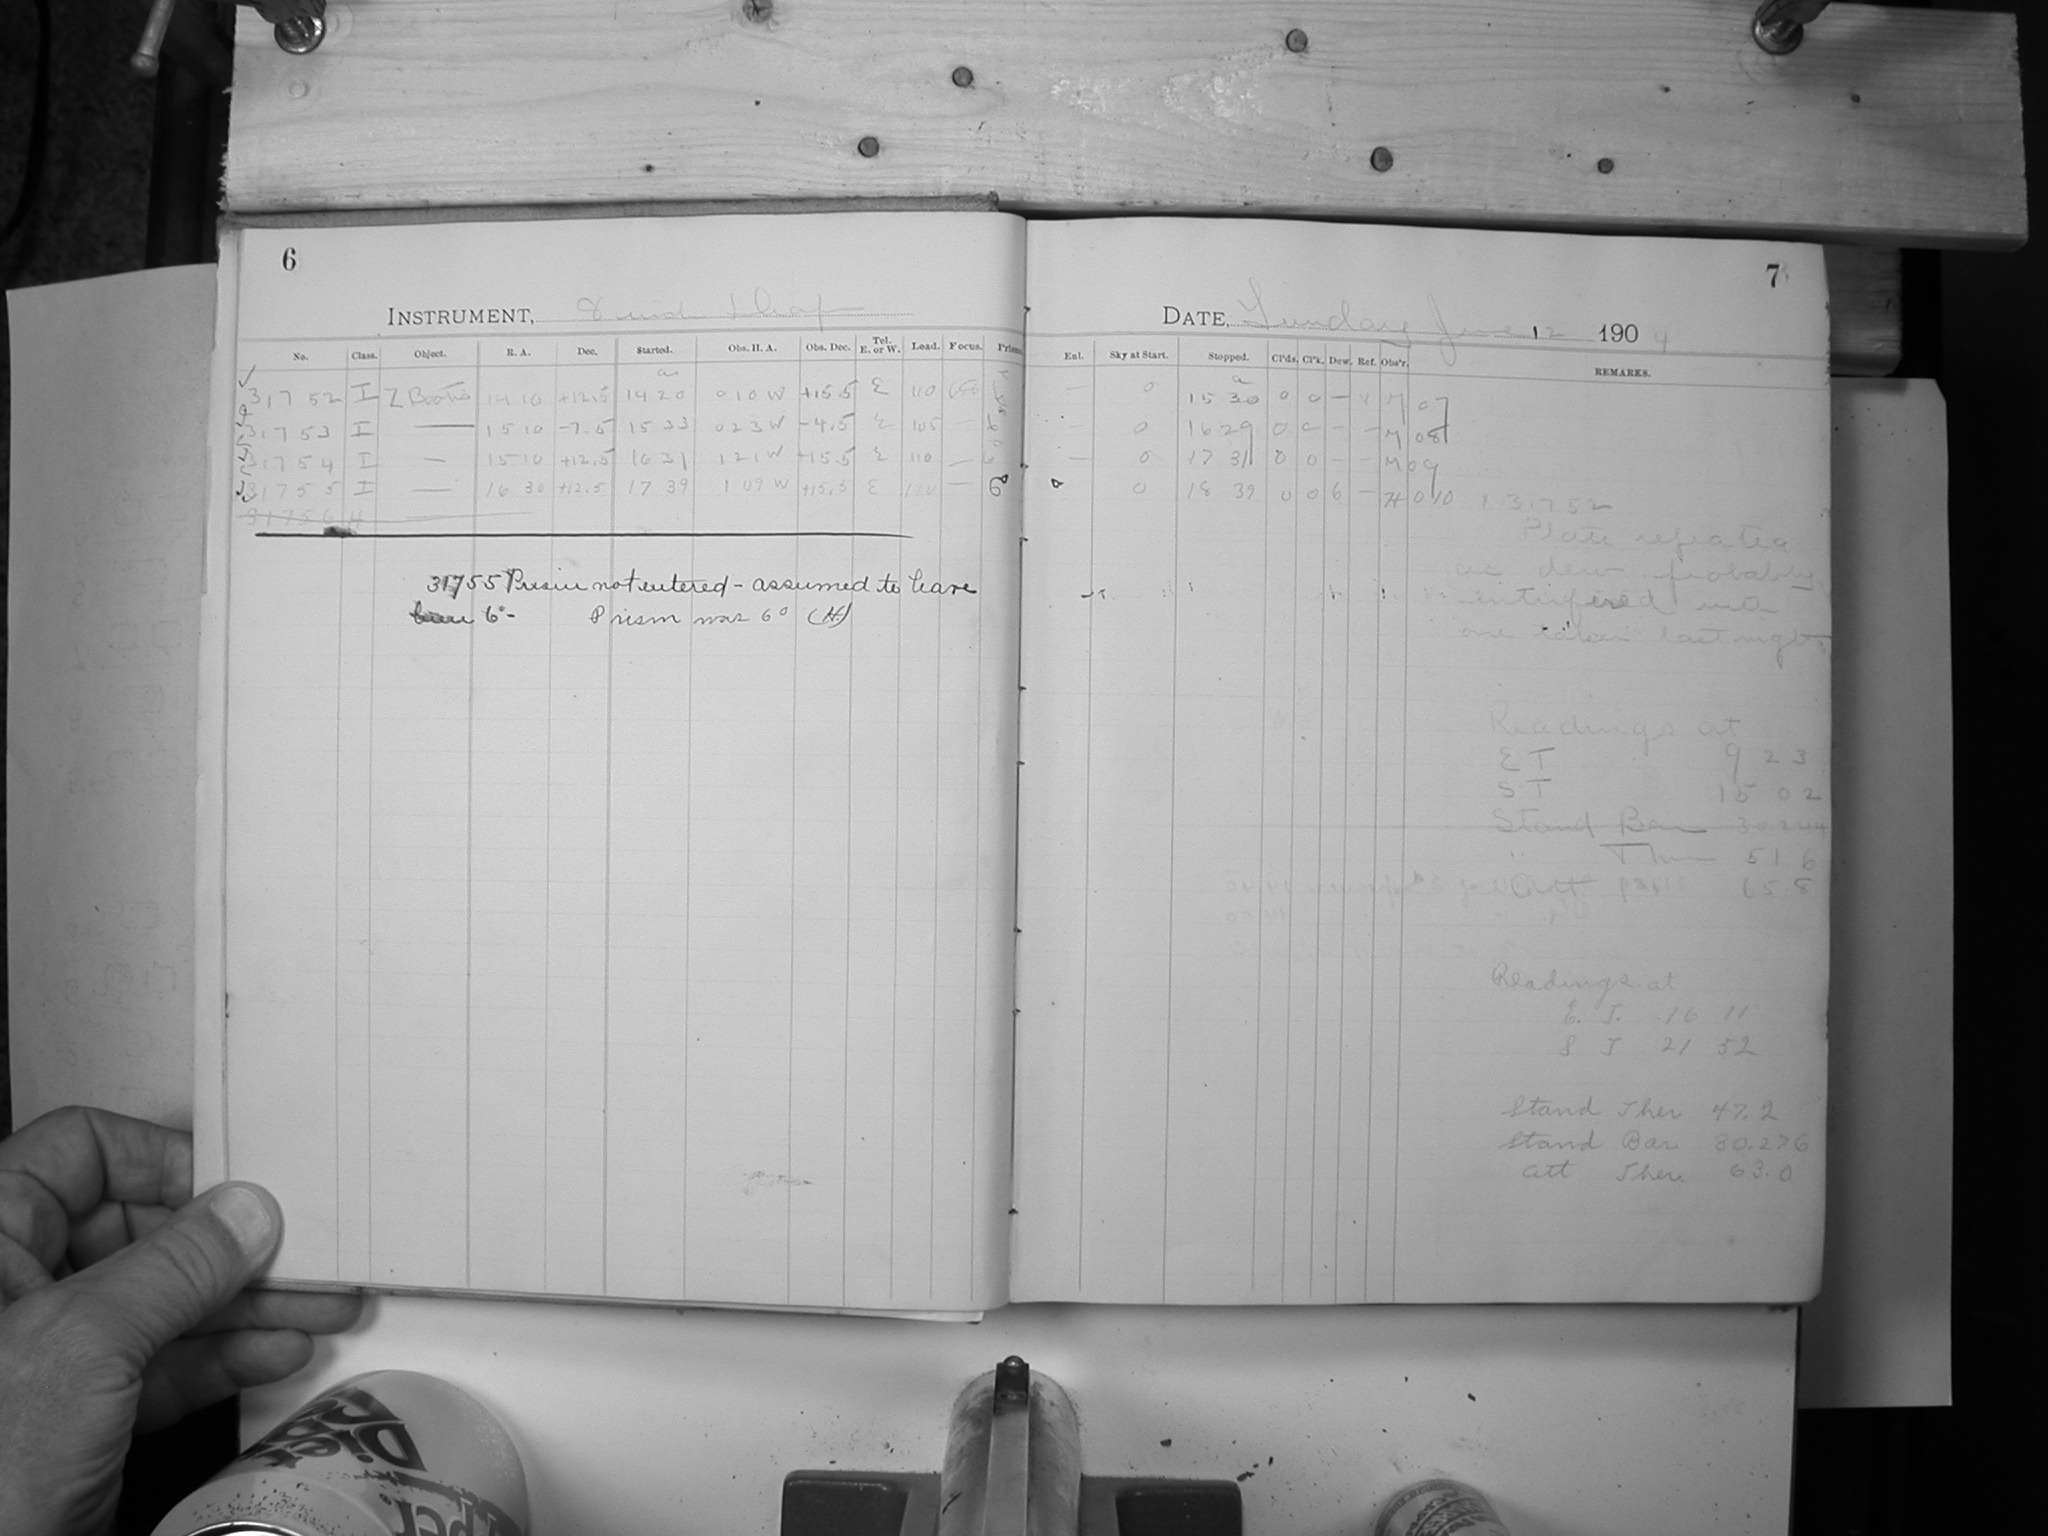 6
INSTRUMENT,
No. Class. Object. R. A. Dec. Started. Obs. H. A. Obs. Dec. Tel. E. or W. Load. Focus. Prism
31752 I Z Bootis 14 10 +12.5 14 20 0 10 W +15.5 E 110
31753 I — 15 10 -7.5 15 33 0 23 W -4.5 E 105 —
31754 I — 15 10 +12.5 16 31 1 21 W +15.5 E 110 — 6
31755 I — 16 30 +12.5 17 39 1 09 W +15.5 E 110 — 6
31756
31755 Prism not entered - assumed to have
been 6°- Prism was 6° (H)
7
DATE, Sunday June 12 1904
Enl. Sky at Start. Stopped. Cl'ds. Cl'k. Dew. Ref. Obs'r. REMARKS.
— 0 15 30 0 0 — M 07
— 0 16 29 0 0 - - M 08
— 0 17 31 0 0 - - M 09
0 18 39 0 0 6 - H 010
I 31752
Plate repeated
as dew probably
interfered with
one taken last night
Readings at
E T 9 23
S T 15 02
Stand Bar 30.244
" Ther 51 6
Att 65 8
Readings at
E. T. 16 11
S T 21 52
Stand Ther 47.2
Stand Bar 30.276
Att Ther. 63.0
Diet